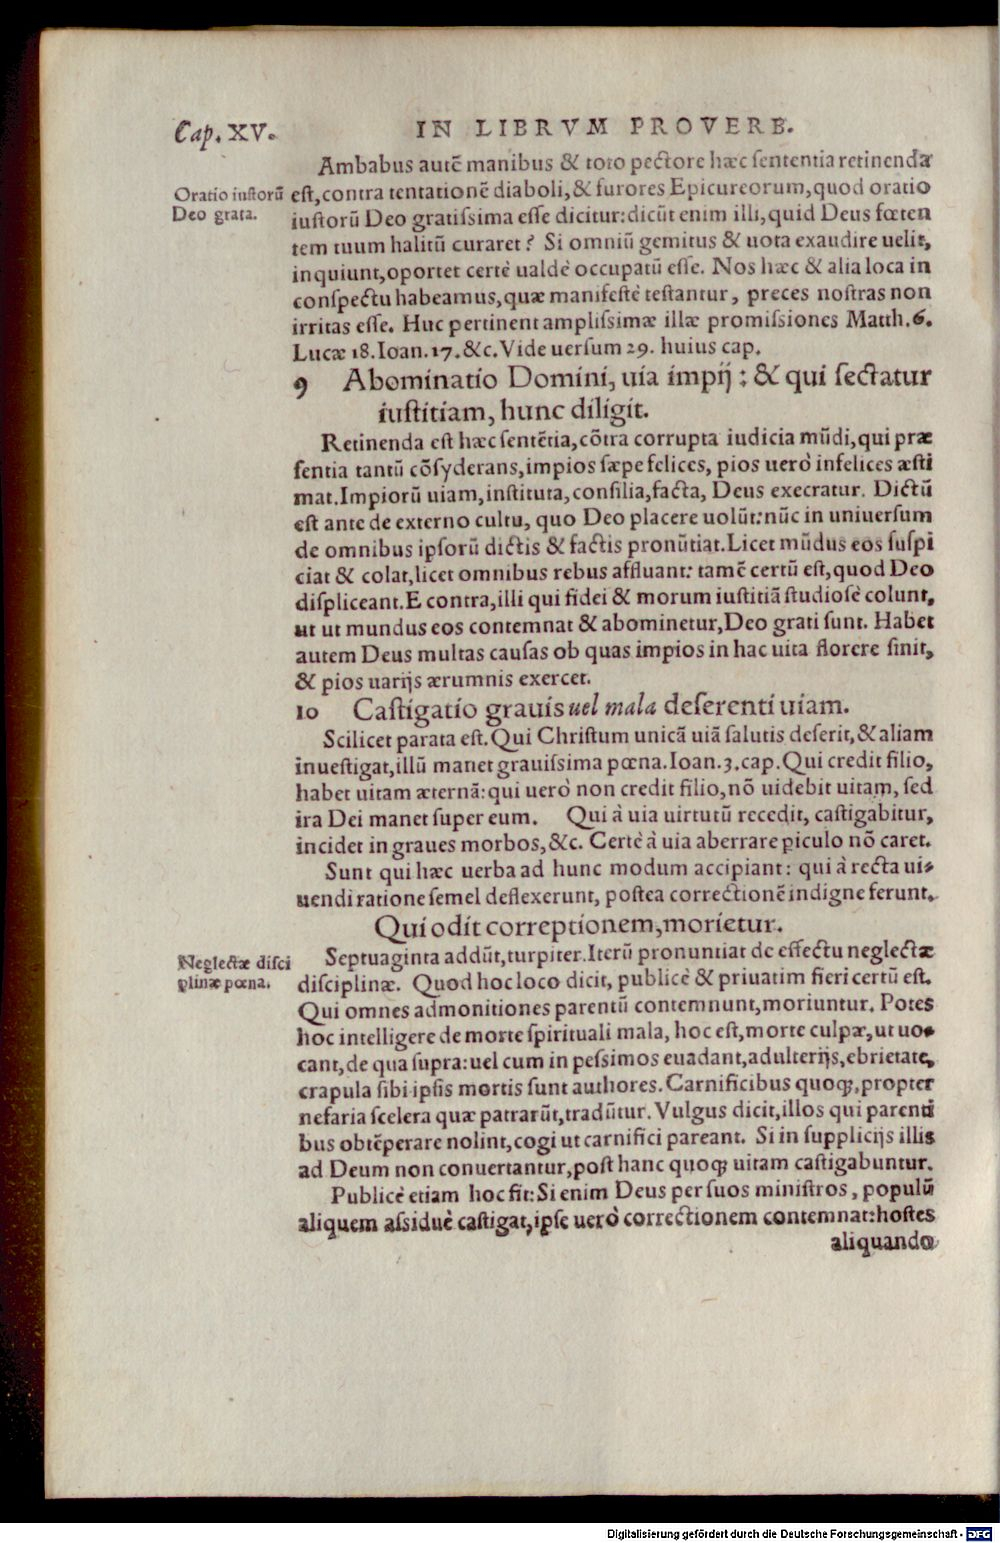 Cap. XV.
IN LIBRVM PROVERB.
Ambabus autē manibus & toto pectore hæc sententia retinenda
Oratio iustorū
Deo grata.
est, contra tentationē diaboli, & furores Epicureorum, quod oratio
iustorū Deo gratissima esse dicitur: dicūt enim illi, quid Deus fœten
tem tuum halitū curaret? Si omniū gemitus & uota exaudire uelit,
inquiunt, oportet certè ualdè occupatū esse. Nos hæc & alia loca in
conspectu habeamus, quæ manifestè testantur, preces nostras non
irritas esse. Huc pertinent amplissimæ illæ promissiones Matth. 6.
Lucæ 18. Ioan. 17. &c. Vide uersum 29. huius cap.
9 Abominatio Domini, uia impij: & qui sectatur
iustitiam, hunc diligit.
Retinenda est hæc sentētia, cōtra corrupta iudicia mūdi, qui præ
sentia tantū cōsyderans, impios sæpe felices, pios uerò infelices æsti
mat. Impiorū uiam, instituta, consilia, facta, Deus execratur. Dictū
est ante de externo cultu, quo Deo placere uolūt: nūc in uniuersum
de omnibus ipsorū dictis & factis pronūtiat. Licet mūdus eos suspi
ciat & colat, licet omnibus rebus affluant: tamē certū est, quod Deo
displiceant. E contra, illi qui fidei & morum iustitiā studiosè colunt,
ut ut mundus eos contemnat & abominetur, Deo grati sunt. Habet
autem Deus multas causas ob quas impios in hac uita florere sinit,
& pios uarijs ærumnis exercet.
10 Castigatio grauis uel mala deserenti uiam.
Scilicet parata est. Qui Christum unicā uiā salutis deserit, & aliam
inuestigat, illū manet grauissima pœna. Ioan. 3. cap. Qui credit filio,
habet uitam æternā: qui uerò non credit filio, nō uidebit uitam, sed
ira Dei manet super eum. Qui à uia uirtutū recedit, castigabitur,
incidet in graues morbos, &c. Certè à uia aberrare piculo nō caret.
Sunt qui hæc uerba ad hunc modum accipiant: qui à recta ui-
uendi ratione semel deflexerunt, postea correctionē indigne ferunt.
Qui odit correptionem, morietur.
Neglectæ disci
plinæ pœna.
Septuaginta addūt, turpiter. Iterū pronuntiat de effectu neglectæ
disciplinæ. Quod hoc loco dicit, publicè & priuatim fieri certū est.
Qui omnes admonitiones parentū contemnunt, moriuntur. Potes
hoc intelligere de morte spirituali mala, hoc est, morte culpæ, ut uo-
cant, de qua supra: uel cum in pessimos euadant, adulterijs, ebrietate,
crapula sibi ipsis mortis sunt authores. Carnificibus quoq;, propter
nefaria scelera quæ patrarūt, tradūtur. Vulgus dicit, illos qui parenti
bus obtēperare nolint, cogi ut carnifici pareant. Si in supplicijs illis
ad Deum non conuertantur, post hanc quoq; uitam castigabuntur.
Publicè etiam hoc fit: Si enim Deus per suos ministros, populū
aliquem assiduè castigat, ipse uerò correctionem contemnat: hostes
aliquando
Digitalisierung gefördert durch die Deutsche Forschungsgemeinschaft - DFG